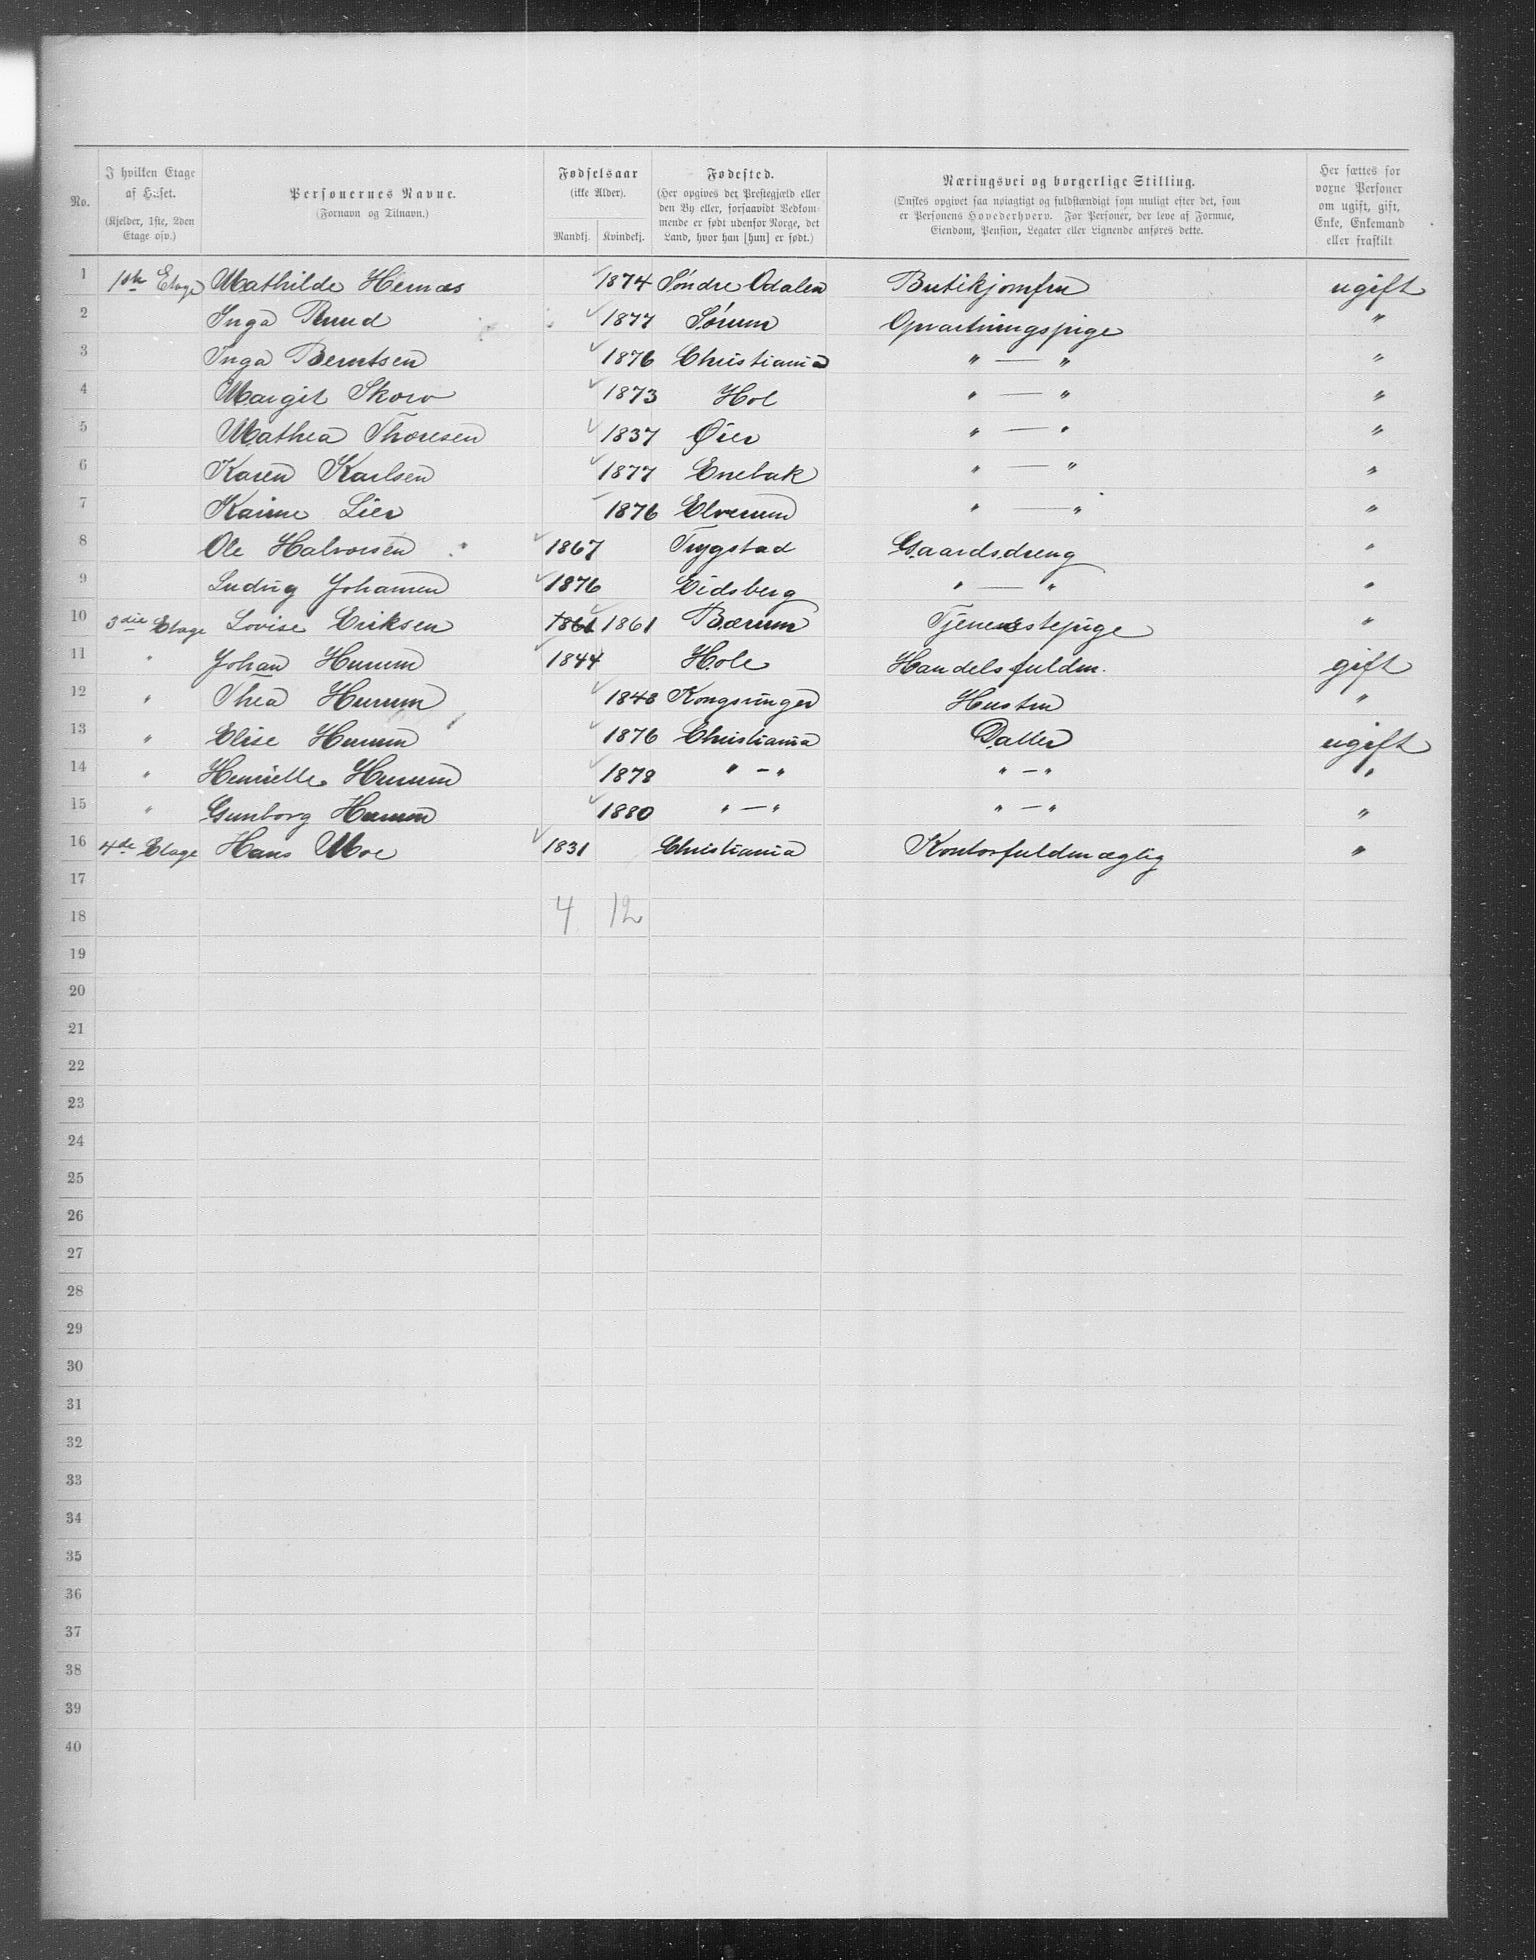 No. | I hvilken Etage af Huset. (Kjelder, 1ste, 2den Etage osv.) | Personernes Navne. (Fornavn og Tilnavn.) | Fødselsaar (ikke Alder). Mandkj. | Kvindekj. | Fødested. (Her opgives det Prestegjæld eller den By eller, forsaavidt Vedkommende er født udenfor Norge, det Land, hvor han [hun] er født.) | Næringsvei og borgerlige Stilling. (Ønskes opgivet saa nøiagtigt og fuldstændigt som muligt efter det, som er Personens Hovederhverv. For Personer, der leve af Formue, Eiendom, Pension, Legater eller Lignende anføres dette. | Her sættes for voxne Personer om ugift, gift, Enke, Enkemand eller fraskilt
1 1ste Etage Mathilde Hernæs 1874 Søndre Odalen Butikjomfru ugift
2 Inga Ruud 1877 Sørum Opvartningspige "
3 Inga Berntsen 1876 Christiania " — " "
4 Margit Skoro 1873 Hol " — " "
5 Mathea Thoresen 1837 Øier " — " "
6 Karen Karlsen 1877 Enebak " — " "
7 Karine Lier 1876 Elverum " — " "
8 Ole Halvorsen 1867 Trygstad Gaardsdreng "
9 Ludvig Johansen 1876 Eidsberg " — " "
10 3die Etage Lovise Eriksen 1861 1861 Bærum Tjenestepige "
11 " Johan Hurum 1844 Hole Handelsfuldm. gift
12 " Thea Hurum 1848 Kongsvinger Hustru "
13 " Elise Hurum 1876 Christiania Datter ugift
14 " Henriette Hurum 1878 " — " " — " "
15 " Gunborg Hurum 1880 " — " " — " "
16 4de Etage Hans Moe 1831 Christiania Kontorfuldmægtig "
17
18 4 12
19
20
21
22
23
24
25
26
27
28
29
30
31
32
33
34
35
36
37
38
39
40